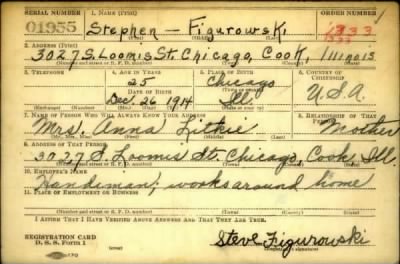 SERIAL NUMBER 1. NAME (Print) ORDER NUMBER
01955 Stephen — Figurowski 1333
2. ADDRESS (Print)
3027 S. Loomis St. Chicago, Cook, Illinois
3. TELEPHONE 4. AGE IN YEARS 5. PLACE OF BIRTH 6. COUNTRY OF CITIZENSHIP
25 Chicago
DATE OF BIRTH
Dec. 26 1914 Ill. U.S.A.
(Exchange) (Number) (Mo.) (Day) (Yr.) (State or country)
7. NAME OF PERSON WHO WILL ALWAYS KNOW YOUR ADDRESS 8. RELATIONSHIP OF THAT PERSON
Mrs. Anna Mother
(Mr., Mrs., Miss) (First) (Middle) (Last)
9. ADDRESS OF THAT PERSON
3027 S. Loomis St. Chicago, Cook, Ill.
(Number and street or R. F. D. number) (Town) (County) (State)
10. EMPLOYER'S NAME
Handiman; works around home
11. PLACE OF EMPLOYMENT OR BUSINESS
(Number and street or R. F. D. number) (Town) (County) (State)
I AFFIRM THAT I HAVE VERIFIED ABOVE ANSWERS AND THAT THEY ARE TRUE.
REGISTRATION CARD
D. S. S. Form 1 Steve Figurowski
(Registrant's signature)